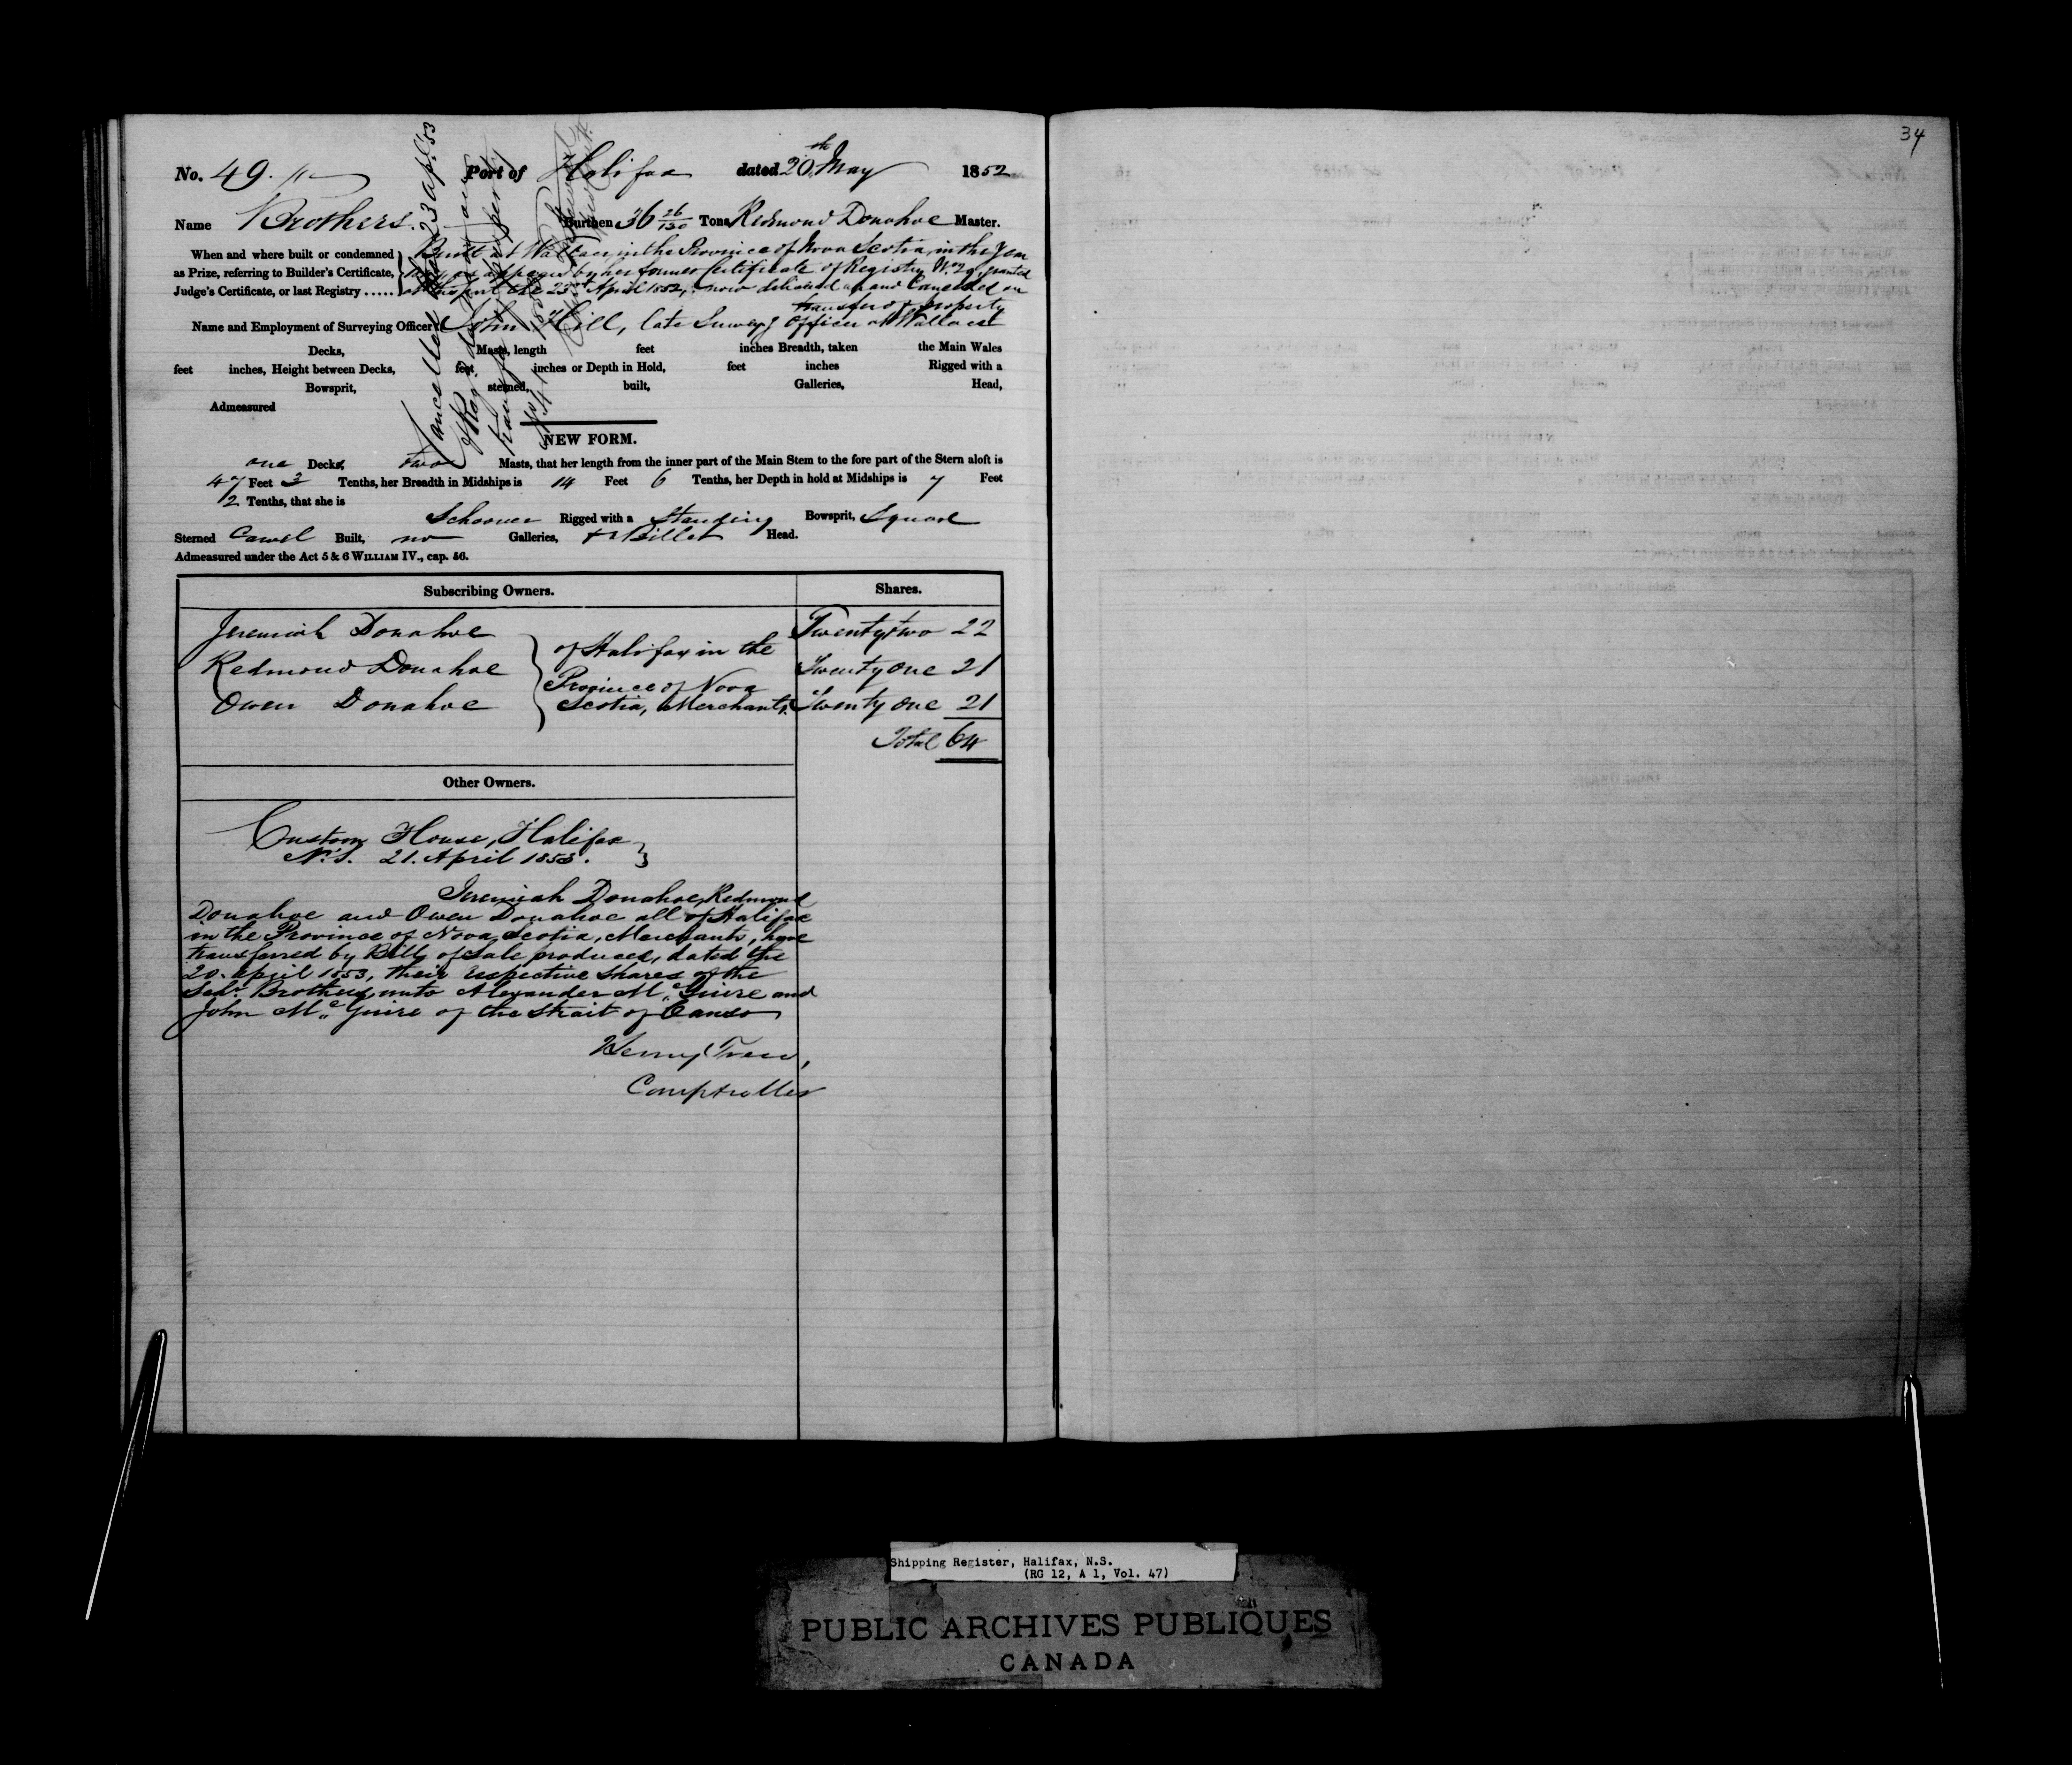 34
No. 49. Port of Halifax dated 20th May 1852
Name Brothers. Burthen 36 26/130 Tons Redmond Donahoe Master.
When and where built or condemned
as Prize, referring to Builder's Certificate,
Judge's Certificate, or last Registry .....
Built at Wallace in the Province of Nova Scotia, in the Year
as appears by her former Certificate of Registry No. 29, granted
at this port the 23rd April 1852, now delivered up and Cancelled on
transfer of property
Name and Employment of Surveying Officer John Hill, late Survey'g Officer at Wallace
Decks, Masts, length feet inches Breadth, taken the Main Wales
feet inches, Height between Decks, feet inches or Depth in Hold, feet inches Rigged with a
Bowsprit, sterned, built, Galleries, Head,
Admeasured
Cancelled 23 Apl. 53
NEW FORM.
one Decks, two Masts, that her length from the inner part of the Main Stem to the fore part of the Stern aloft is
47 Feet 3 Tenths, her Breadth in Midships is 14 Feet 6 Tenths, her Depth in hold at Midships is 7 Feet
2 Tenths, that she is
Schooner Rigged with a Standing Bowsprit, Square
Sterned Carvel Built, no Galleries, & Billet Head.
Admeasured under the Act 5 & 6 WILLIAM IV., cap. 56.
Subscribing Owners. Shares.
Jeremiah Donahoe Twenty two 22
Redmond Donahoe Twenty One 21
Owen Donahoe Twenty One 21
of Halifax in the
Province of Nova
Scotia, Merchants.
Total 64
Other Owners.
Custom House, Halifax
N.S. 21. April 1853.
Jeremiah Donahoe, Redmond
Donahoe and Owen Donahoe all of Halifax
in the Province of Nova Scotia, Merchants, have
transferred by Bill of Sale produced, dated the
20. April 1853, their respective Shares of the
Schr. Brothers, unto Alexander Mc Guire and
John Mc Guire of the Strait of Canso
Henry Trew,
Comptroller
Shipping Register, Halifax, N.S.
(RG 12, A 1, Vol. 47)
PUBLIC ARCHIVES PUBLIQUES
CANADA